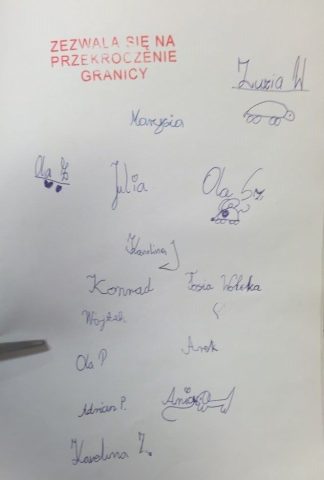 ZEZWALA SIĘ NA
PRZEKROCZENIE
GRANICY
Zuzia W
Marysia
Ola Ż
Julia
Ola Sz
Karolina J
Konrad
Tosia
Wojtek
Ola P
Arek
Adrian P.
Ania
Karolina Z.